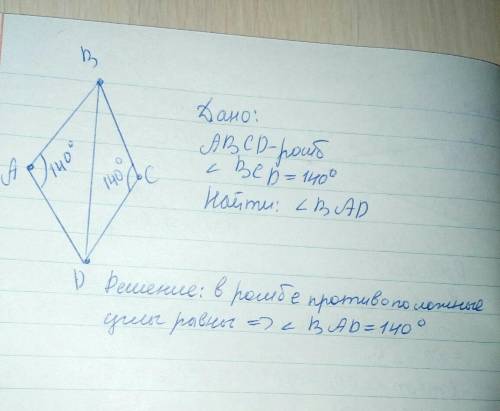 B
Дано:
ABCD-ромб
∠ BCD = 140°
Найти: ∠ BAD
A 140° 140° C
D
Решение: в ромбе противоположные
углы равны => ∠ BAD = 140°